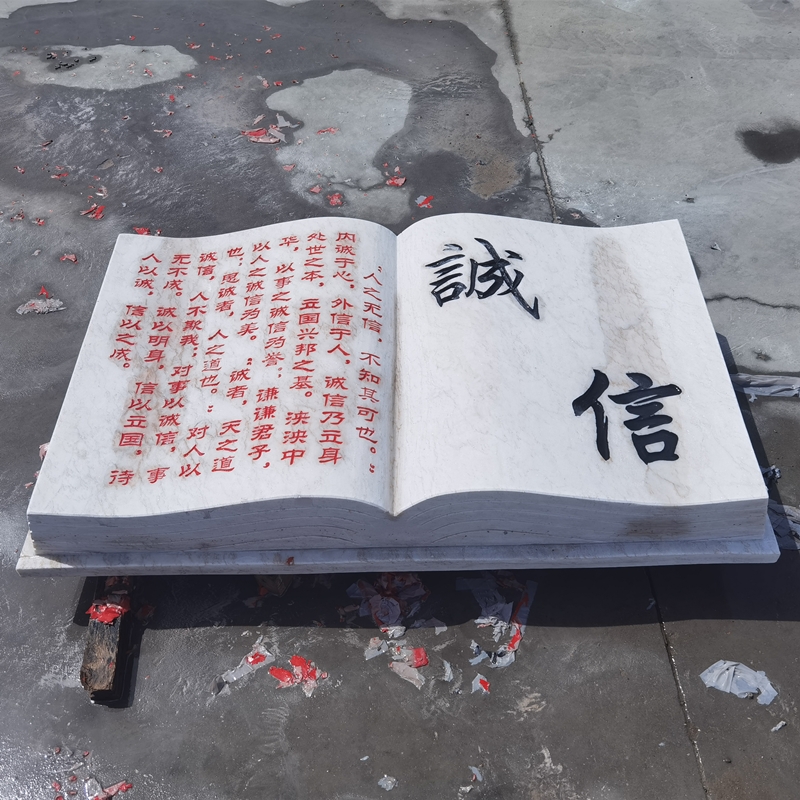 誠
信
“人之无信，不知其可也。”
内诚于心，外信于人，诚信乃立身
处世之本，立国兴邦之基。泱泱中
华，以事之诚信为誉；谦谦君子，
以人之诚信为美。“诚者，天之道
也；思诚者，人之道也。”对人以
诚信，人不欺我；对事以诚信，事
无不成。诚以明身，信以立国，待
人以诚，信以之成。